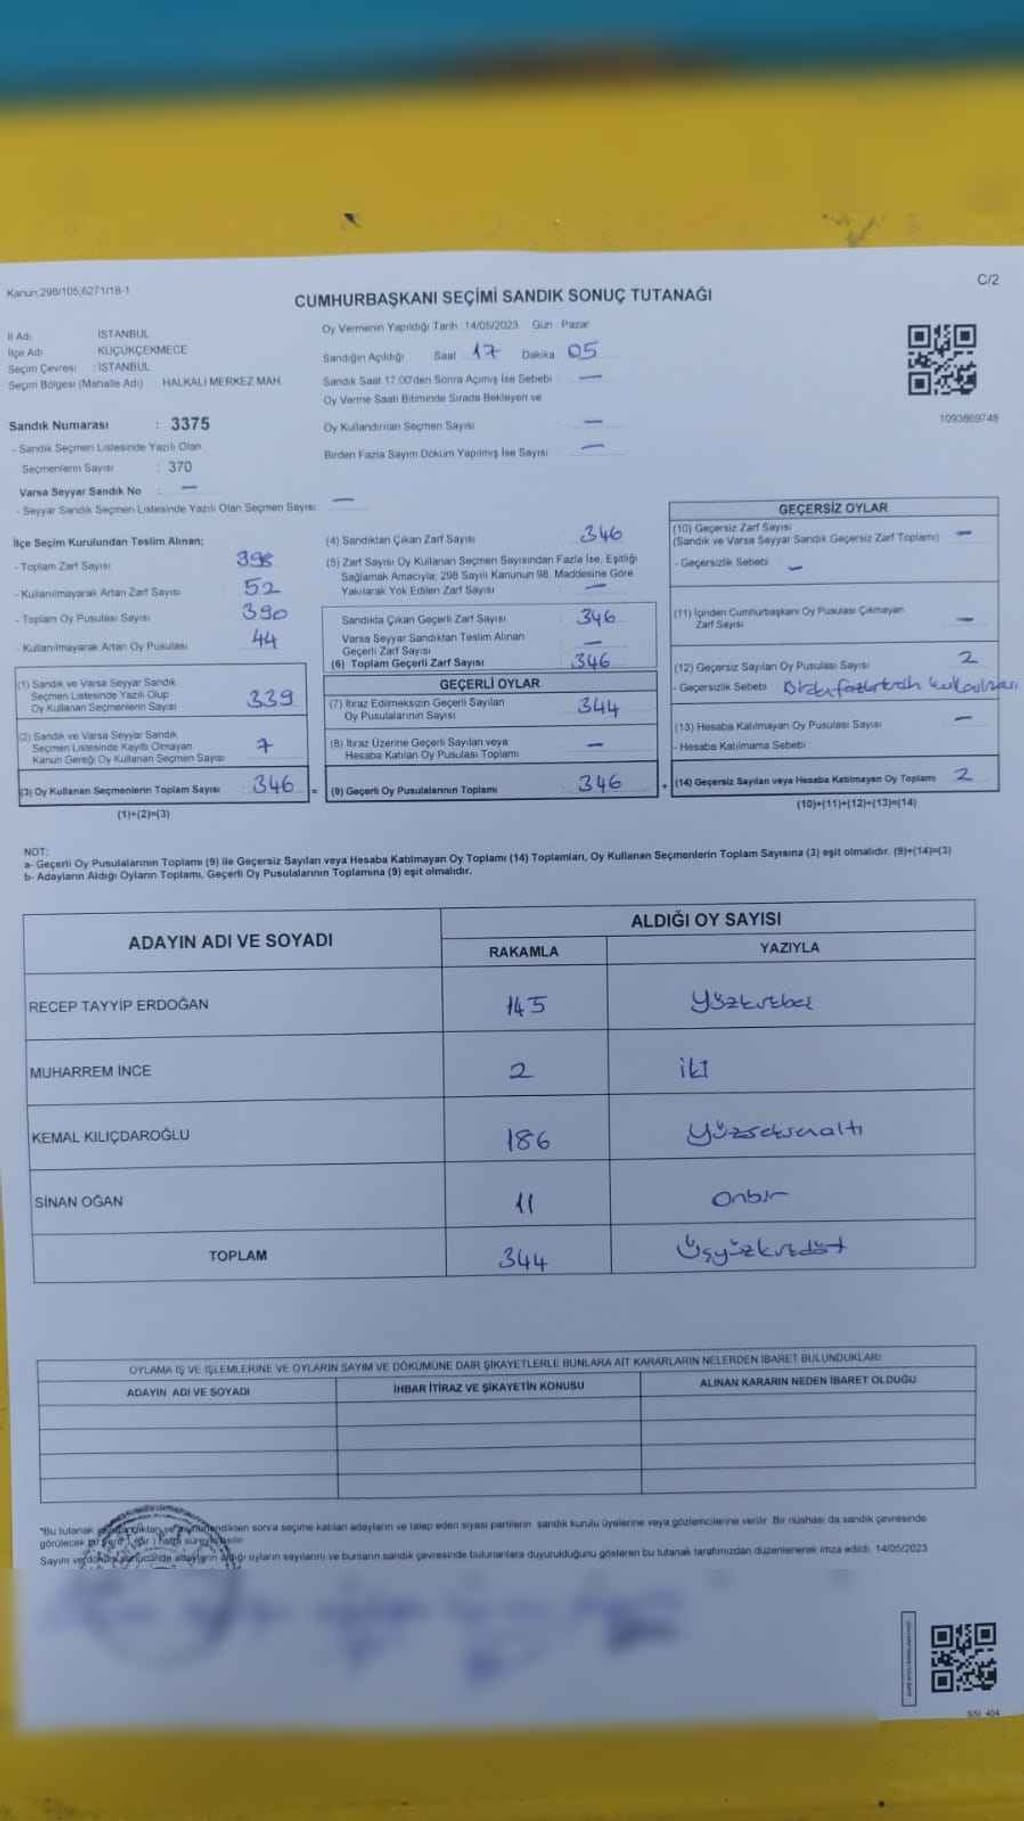 Kanun:298/105,6271/18-1
C/2
CUMHURBAŞKANI SEÇİMİ SANDIK SONUÇ TUTANAĞI
İl Adı : İSTANBUL
İlçe Adı : KÜÇÜKÇEKMECE
Seçim Çevresi : İSTANBUL
Seçim Bölgesi (Mahalle Adı) : HALKALI MERKEZ MAH.
Sandık Numarası : 3375
- Sandık Seçmen Listesinde Yazılı Olan
Seçmenlerin Sayısı : 370
Varsa Seyyar Sandık No : —
- Seyyar Sandık Seçmen Listesinde Yazılı Olan Seçmen Sayısı: —
Oy Vermenin Yapıldığı Tarih :14/05/2023 Gün : Pazar
Sandığın Açıldığı Saat 17 Dakika 05
Sandık Saat 17:00'den Sonra Açılmış İse Sebebi —
Oy Verme Saati Bitiminde Sırada Bekleyen ve
Oy Kullandırılan Seçmen Sayısı —
Birden Fazla Sayım Döküm Yapılmış İse Sayısı —
1093869748
İlçe Seçim Kurulundan Teslim Alınan:
- Toplam Zarf Sayısı 398
- Kullanılmayarak Artan Zarf Sayısı 52
- Toplam Oy Pusulası Sayısı 390
- Kullanılmayarak Artan Oy Pusulası 44
(1) Sandık ve Varsa Seyyar Sandık
Seçmen Listesinde Yazılı Olup
Oy Kullanan Seçmenlerin Sayısı 339
(2) Sandık ve Varsa Seyyar Sandık
Seçmen Listesinde Kayıtlı Olmayan
Kanun Gereği Oy Kullanan Seçmen Sayısı 7
(3) Oy Kullanan Seçmenlerin Toplam Sayısı 346 =
(1)+(2)=(3)
(4) Sandıktan Çıkan Zarf Sayısı 346
(5) Zarf Sayısı Oy Kullanan Seçmen Sayısından Fazla İse, Eşitliği
Sağlamak Amacıyla; 298 Sayılı Kanunun 98. Maddesine Göre
Yakılarak Yok Edilen Zarf Sayısı —
Sandıkta Çıkan Geçerli Zarf Sayısı 346
Varsa Seyyar Sandıktan Teslim Alınan
Geçerli Zarf Sayısı —
(6) Toplam Geçerli Zarf Sayısı 346
GEÇERLİ OYLAR
(7) İtiraz Edilmeksizin Geçerli Sayılan
Oy Pusulalarının Sayısı 344
(8) İtiraz Üzerine Geçerli Sayılan veya
Hesaba Katılan Oy Pusulası Toplamı —
(9) Geçerli Oy Pusulalarının Toplamı 346 +
GEÇERSİZ OYLAR
(10) Geçersiz Zarf Sayısı
(Sandık ve Varsa Seyyar Sandık Geçersiz Zarf Toplamı) —
- Geçersizlik Sebebi —
(11) İçinden Cumhurbaşkanı Oy Pusulası Çıkmayan
Zarf Sayısı —
(12) Geçersiz Sayılan Oy Pusulası Sayısı 2
- Geçersizlik Sebebi
(13) Hesaba Katılmayan Oy Pusulası Sayısı —
- Hesaba Katılmama Sebebi
(14) Geçersiz Sayılan veya Hesaba Katılmayan Oy Toplamı 2
(10)+(11)+(12)+(13)=(14)
NOT:
a- Geçerli Oy Pusulalarının Toplamı (9) ile Geçersiz Sayılan veya Hesaba Katılmayan Oy Toplamı (14) Toplamları, Oy Kullanan Seçmenlerin Toplam Sayısına (3) eşit olmalıdır. (9)+(14)=(3)
b- Adayların Aldığı Oyların Toplamı, Geçerli Oy Pusulalarının Toplamına (9) eşit olmalıdır.
ADAYIN ADI VE SOYADI
ALDIĞI OY SAYISI
RAKAMLA YAZIYLA
RECEP TAYYİP ERDOĞAN 145 Yüzkırkbeş
MUHARREM İNCE 2 iki
KEMAL KILIÇDAROĞLU 186 Yüzseksenaltı
SİNAN OĞAN 11 Onbir
TOPLAM 344 Üçyüzkırkdört
OYLAMA İŞ VE İŞLEMLERİNE VE OYLARIN SAYIM VE DÖKÜMÜNE DAİR ŞİKAYETLERLE BUNLARA AİT KARARLARIN NELERDEN İBARET BULUNDUKLARI
ADAYIN ADI VE SOYADI İHBAR İTİRAZ VE ŞİKAYETİN KONUSU ALINAN KARARIN NEDEN İBARET OLDUĞU
"Bu tutanak sonra seçime katılan adayların ve talep eden siyasi partilerin sandık kurulu üyelerine veya gözlemcilerine verilir. Bir nüshası da sandık çevresinde
görülecek
Sayım ve aldığı oyların sayılarını ve bunların sandık çevresinde bulunanlara duyurulduğunu gösteren bu tutanak tarafımızdan düzenlenerek imza edildi. 14/05/2023